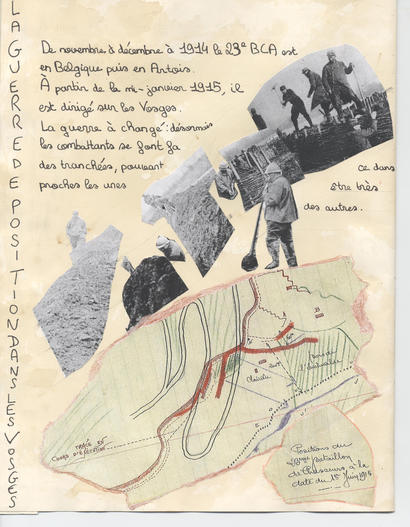 LA GUERRE DE POSITION DANS LES VOSGES
De novembre à décembre à 1914 le 23e BCA est
en Belgique puis en Artois.
À partir de la mi-janvier 1915, il
est dirigé sur les Vosges.
La guerre à changé: désormais
les combattants se font fa
ce dans
des tranchées, pouvant
être très
proches les unes
des autres.
TRACÉ EN
COURS D'EXÉCUTION
Positions du
23me bataillon
de Chasseurs, à la
date du 15 Juin 1915